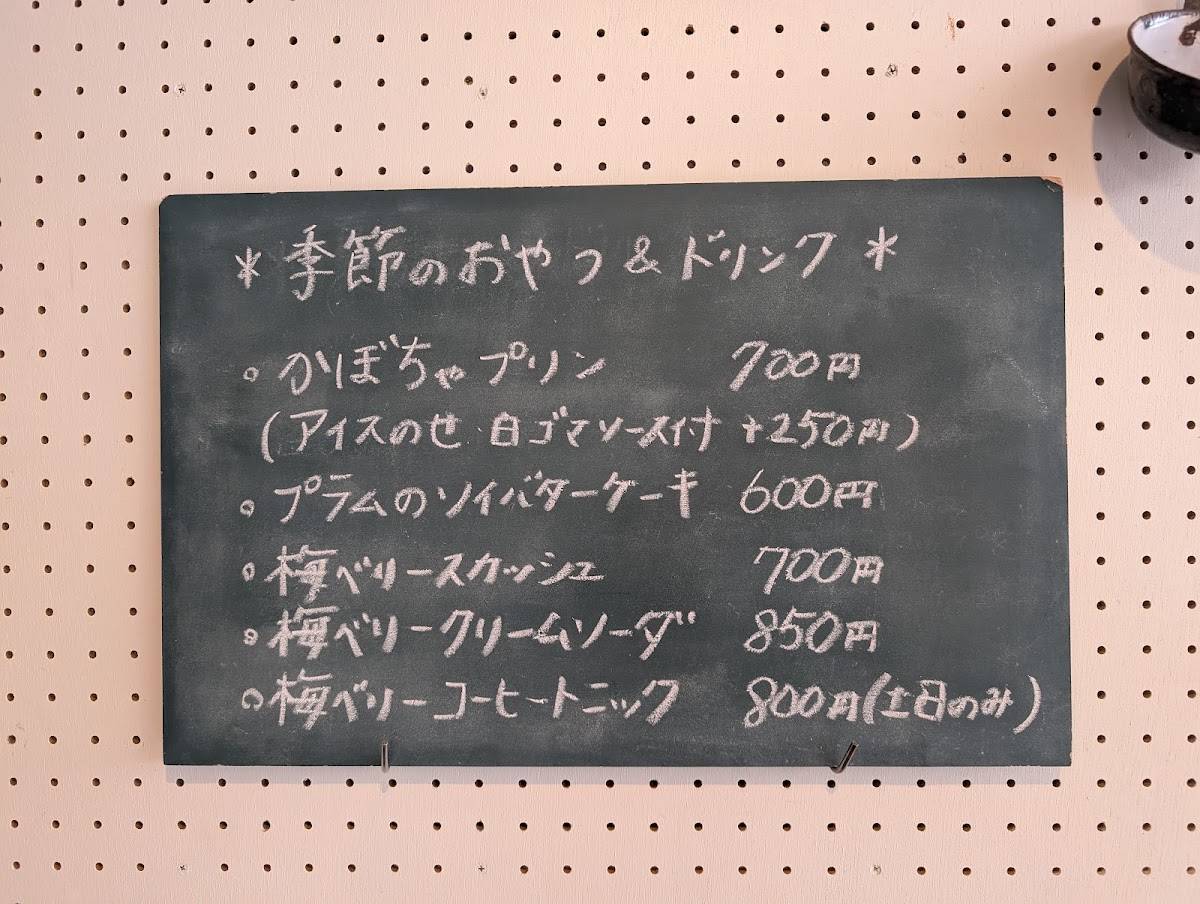 *季節のおやつ&ドリンク*
○かぼちゃプリン 700円
(アイスのせ・白ゴマソース付 +250円)
○プラムのソイバターケーキ 600円
○梅ベリースカッシュ 700円
○梅ベリークリームソーダ 850円
○梅ベリーコーヒートニック 800円(土日のみ)